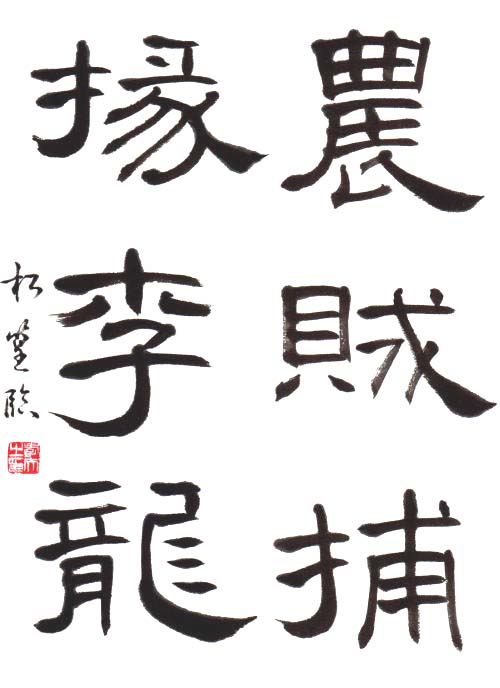 農賊捕
掾李龍
松臨